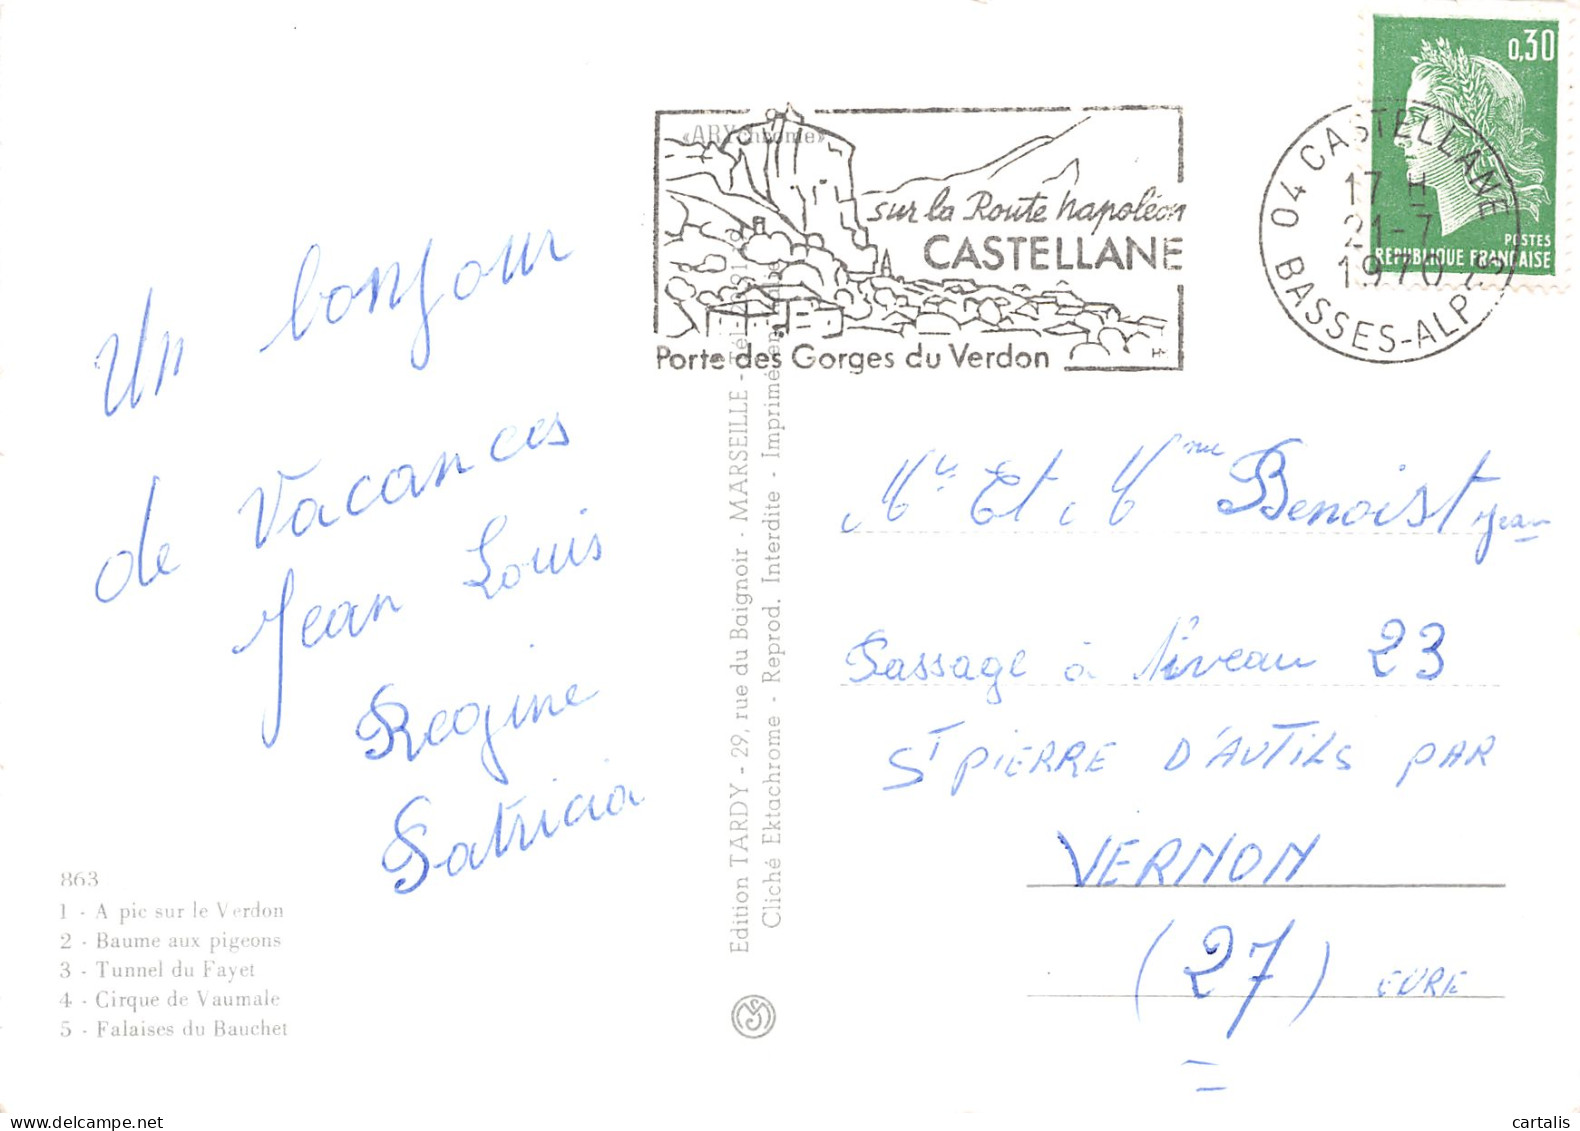 Un bonjour
de Vacances
Jean Louis
Regine
Patricia
863
1 - A pic sur le Verdon
2 - Baume aux pigeons
3 - Tunnel du Fayet
4 - Cirque de Vaumale
5 - Falaises du Bauchet
«ARYchrome»
sur la Route Napoléon
CASTELLANE
Porte des Gorges du Verdon
Edition TARDY - 29, rue du Baignoir - MARSEILLE - Tél.
Cliché Ektachrome - Reprod. Interdite - Imprimé en
0,30
POSTES
REPUBLIQUE FRANÇAISE
04 CASTELLANE
17 H
21-7
1970
BASSES-ALPES
Mr Et Mme Benoist Jean
Passage à Niveau 23
ST PIERRE D'AUTILS PAR
VERNON
(27) EURE
cartalis